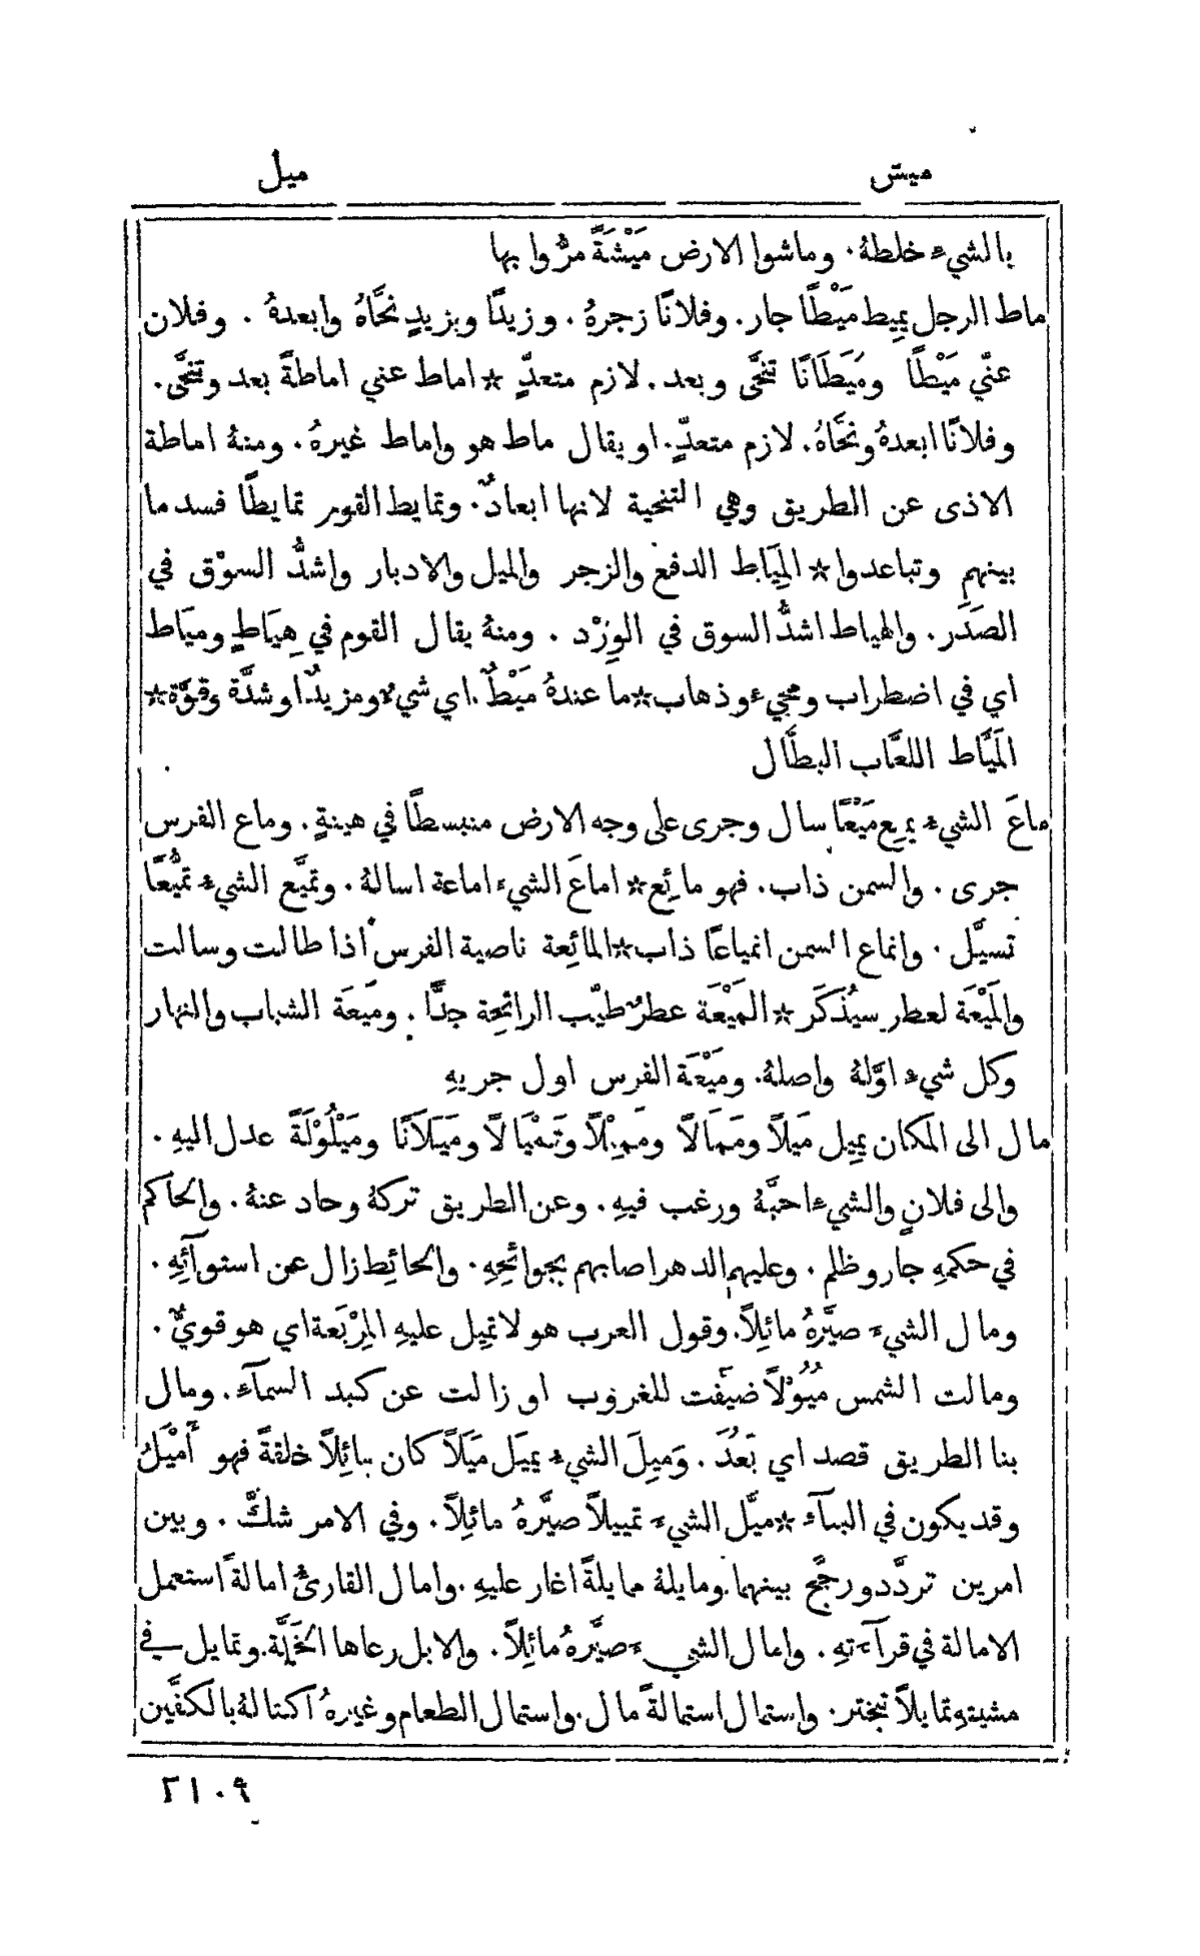 ميش
ميل
بالشيء خلطهُ. وماشوا الارض مَيْشَةً مرُّوا بها
ماط الرجل يميط مَيْطًا جار. وفلانًا زجرهُ. وزيدًا وبزيدٍ نحَّاهُ وابعدهُ. وفلان
عنّي مَيْطًا ومَيَطَانًا تنحَّى وبعد. لازم متعدٍّ * اماط عني اماطةً بعد وتنحَّى.
وفلانًا ابعدهُ ونحَّاهُ. لازم متعدٍّ. او يقال ماط هو واماط غيرهُ. ومنهُ اماطة
الاذى عن الطريق وهي التنحية لانها ابعادٌ. وتمايط القوم تمايطًا فسد ما
بينهم وتباعدوا * المِيَاط الدفع والزجر والميل والادبار واشدُّ السوْق في
الصَدَر. والهياط اشدُّ السوق في الوِرْد. ومنهُ يقال القوم في هِيَاطٍ ومياط
اي في اضطراب ومجيء وذهاب * ما عندهُ مَيْطٌ. اي شيءٌ ومزيدٌ او شدَّة وقوَّة *
المَيَّاط اللعَّاب البطَّال
ماعَ الشيء يميع مَيْعًا سال وجرى على وجه الارض منبسطًا في هينةٍ. وماع الفرس
جرى. والسمن ذاب. فهو مائِع * اماعَ الشيء اماعة اسالهُ. وتميَّع الشيء تميُّعًا
تسيَّل. وانماع السمن انمياعًا ذاب * المائِعة ناصية الفرس اذا طالت وسالت
والمَيْعَة لعطر سيُذكَر * المَيْعَة عطرٌ طيّب الرائحِة جدًّا. ومَيعَة الشباب والنهار
وكل شيء اوَّلهُ واصلهُ. ومَيْعَة الفرس اول جريهِ
مال الى المكان يميل مَيلاً ومَمَالاً ومَمِيْلاً وتَمْيَالاً ومَيَلَانًا ومَيْلُوْلَةً عدل اليهِ.
والى فلانٍ والشيء احبَّهُ ورغب فيهِ. وعن الطريق تركهُ وحاد عنهُ. والحاكم
في حكمهِ جار وظلم. وعليهم الدهر اصابهم بجوائحِهِ. والحائِط زال عن استوآئِهِ.
ومال الشيءَ صيَّرهُ مائلِاً. وقول العرب هو لا تميل عليهِ المِرْبَعَة اي هو قويٌّ.
ومالت الشمس مُيُوْلاً ضيَّفت للغروب او زالت عن كبد السمآء. ومال
بنا الطريق قصد اي بَعُدَ. ومَيِلَ الشيء يميَل مَيَلاً كان مائِلاً خلقةً فهو أَمْيَلُ
وقد يكون في البنآء * ميَّل الشيءَ تمييلاً صيَّرهُ مائلِاً. وفي الامر شكَّ. وبين
امرين تردَّد ورجَّح بينهما. ومايلهُ ممايلةً اغار عليهِ. وامال القارئُ امالةً استعمل
الامالة في قرآءَتهِ. وامال الشيءَ صيَّرهُ مائلِاً. والابل رعاها الخَلَّة. وتمايل في
مشيتهِ تمايلاً تبختر. واستمال استمالةً مال. واستمال الطعام وغيرهُ اكتالهُ بالكفَّين
٢١٠٩